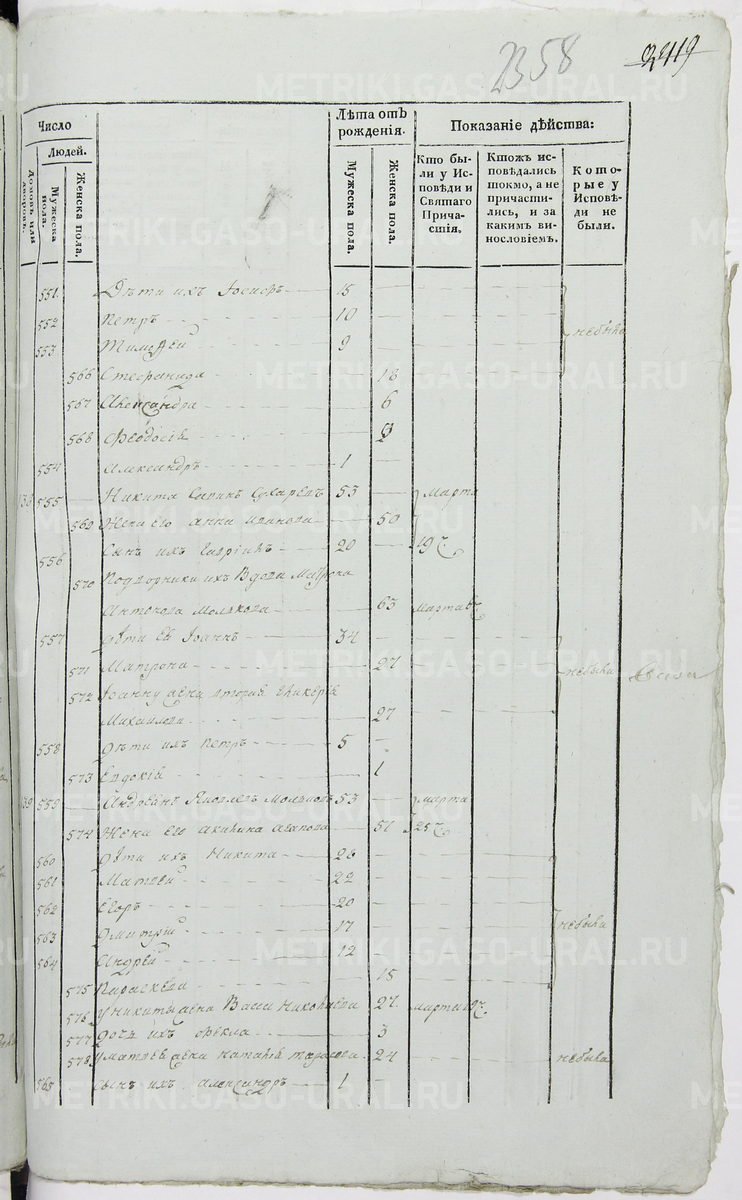 2358 2419
Число
Людей.
Домовъ или дворовъ.
Мужеска пола.
Женска пола.
Лѣта отъ рожденія.
Мужеска пола.
Женска пола.
Показаніе дѣйства:
Кто были у Исповѣди и Святаго Причастія.
Ктожъ исповѣдались токмо, а не причастились, и за какимъ винословіемъ.
Которые у Исповѣди не были.
551. Дѣти ихъ Іосифъ 15
552 Петръ 10 небыли
553 Тимоѳей 9
566 Стефанида 18
567 Александра 6
568 Феодосія
554 Александръ 1
555 Никита Сухаревъ 53 Марта
569 Жена его Анна Иванова 50
556 Сынъ ихъ Гавріилъ 20 19
570 Подворники ихъ Вдова Матрона
Антонова Молвкова 63 марта
557 Дѣти ея Іоаннъ 34
571 Матрона 27 небыли
572 Іоанну жена вторая Гликерія
Михаилова 27
558 Дѣти ихъ Петръ 5
573 Евдокія 1
559 Андреанъ Яковлевъ 53 марта
574 Жена его Акилина 51 25
560 Дѣти ихъ Никита 26
561 Матвей 22
562 Егоръ 20
563 Дмитрій 17 небыли
564 Андрей 12
575 Параскева 15
576 У Никиты жена Васса Николаева 27. марта 19
577 Дочь ихъ Фекла 3
578 У Матвея жена Наталія 24 небыла
565 Сынъ ихъ Александръ 1
METRIKI.GASO-URAL.RU